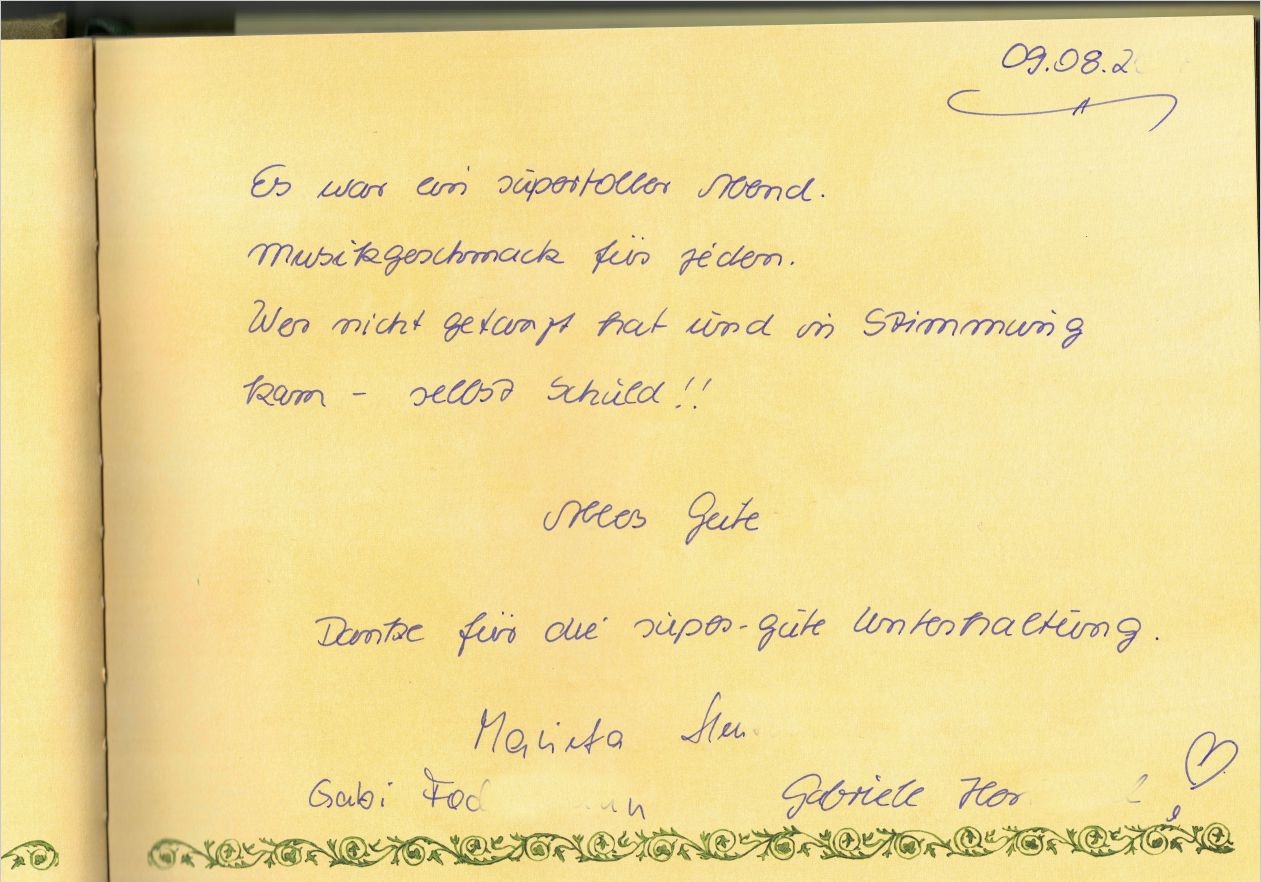 09.08.2
Es war ein supertoller Abend.
Musikgeschmack für jeden.
Wer nicht getanzt hat und in Stimmung
kam - selbst Schuld!!
Alles Gute
Danke für die super-gute Unterhaltung.
Marieta
Gabi
Gabriele